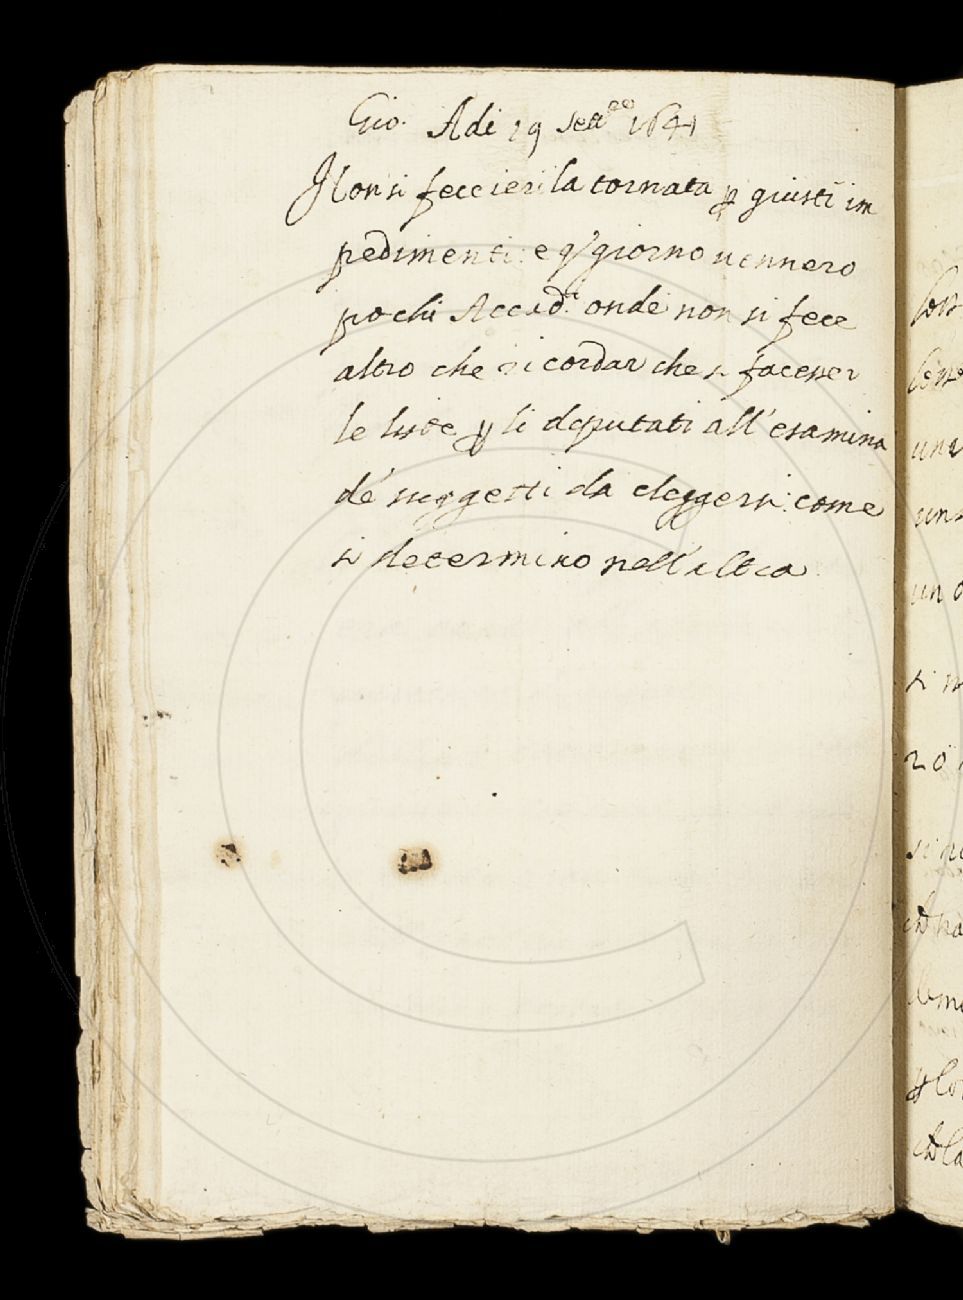 Gio. Adi 19 sett.re 1641
Non si fece ieri la tornata p giusti im
pedimenti: e q.o giorno uennero
pochi Accad.i onde non si fece
altro che ricordar che si facesser
le liste p li deputati all'esamina
de' suggetti da eleggersi: come
si determino nell'altra